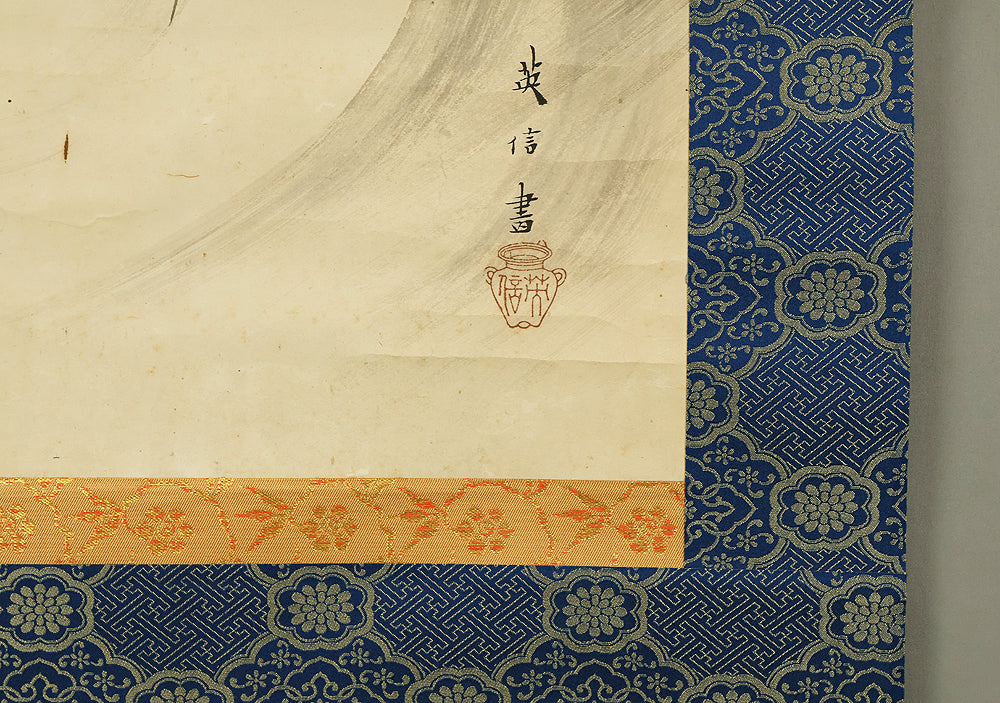 英信畫
英信